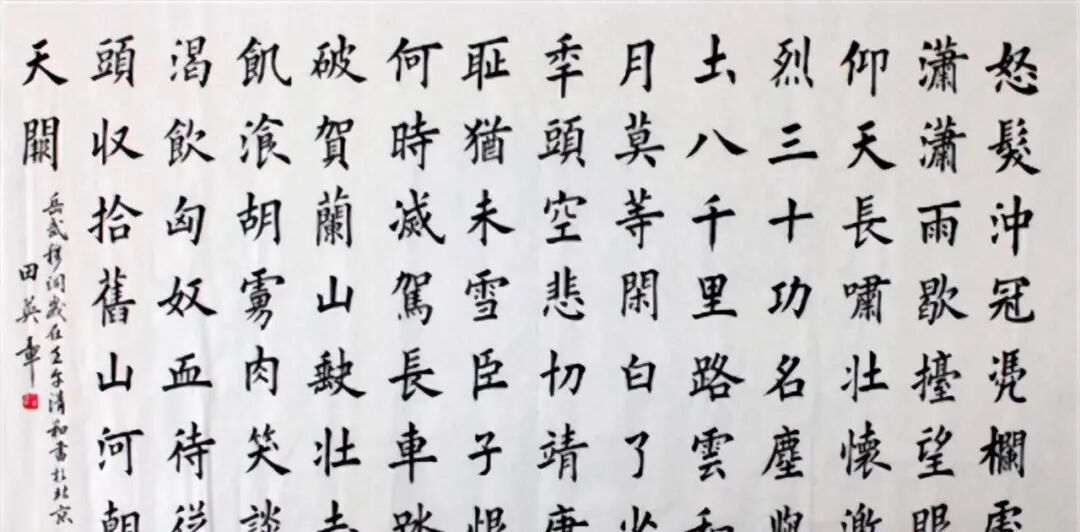 怒髮沖冠凴欄處
瀟瀟雨歇擡望眼
仰天長嘯壯懷激
烈三十功名塵與
土八千里路雲和
月莫等閑白了少
秊頭空悲切靖康
耻猶未雪臣子恨
何時滅駕長車踏
破賀蘭山缺壯志
飢湌胡虜肉笑談
渴飲匈奴血待從
頭收拾舊山河朝
天闕
岳武穆詞歲在壬午清和書於北京
田英章